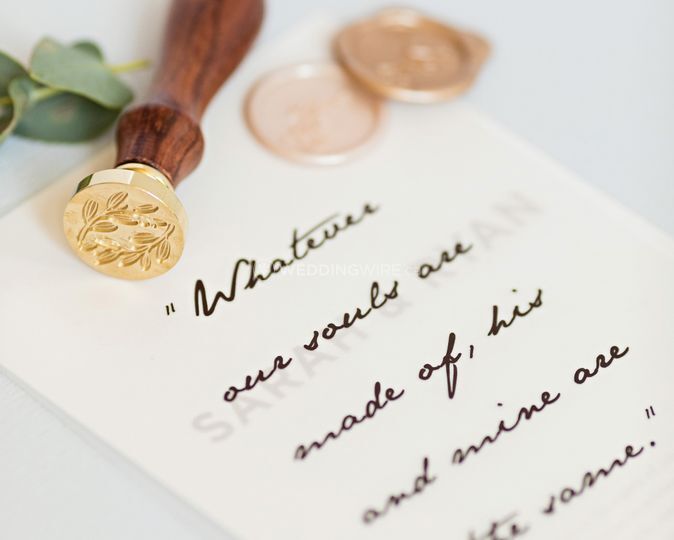 "Whatever
our souls are
made of, his
and mine are
the same."
SARAH & RYAN
WEDDINGWIRE